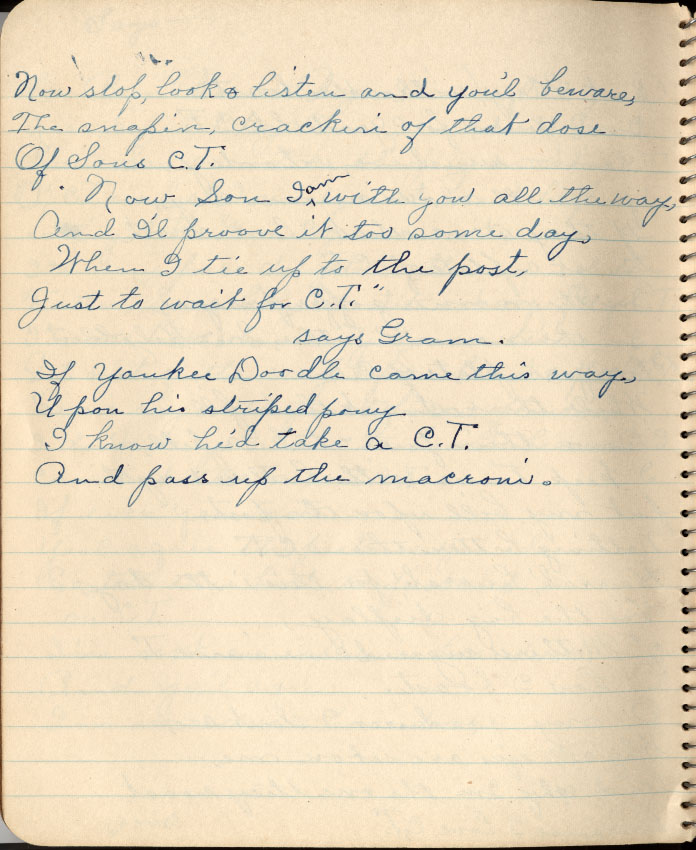 Now stop, look & listen and you'l beware,
The snapin, crackin of that dose
Of Sons C.T.
Now Son I am with you all the way,
And I'l proove it too some day,
When I tie up to the post,
Just to wait for C.T."
says Gram.
If Yankee Doodle came this way,
Upon his striped pony
I know he'd take a C.T.
And pass up the macroni.